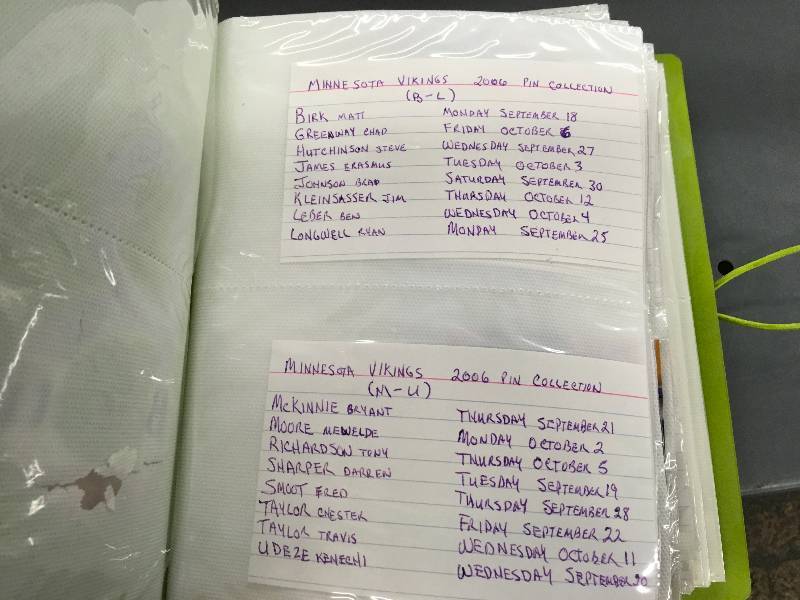 MINNESOTA VIKINGS 2006 PIN COLLECTION
(B-L)
BIRK MATT MONDAY SEPTEMBER 18
GREENWAY CHAD FRIDAY OCTOBER 6
HUTCHINSON STEVE WEDNESDAY SEPTEMBER 27
JAMES ERASMUS TUESDAY OCTOBER 3
JOHNSON BRAD SATURDAY SEPTEMBER 30
KLEINSASSER JIM THURSDAY OCTOBER 12
LEBER BEN WEDNESDAY OCTOBER 4
LONGWELL RYAN MONDAY SEPTEMBER 25
MINNESOTA VIKINGS 2006 PIN COLLECTION
(M-U)
MCKINNIE BRYANT THURSDAY SEPTEMBER 21
MOORE MEWELDE MONDAY OCTOBER 2
RICHARDSON TONY THURSDAY OCTOBER 5
SHARPER DARREN TUESDAY SEPTEMBER 19
SMOOT FRED THURSDAY SEPTEMBER 28
TAYLOR CHESTER FRIDAY SEPTEMBER 22
TAYLOR TRAVIS WEDNESDAY OCTOBER 11
UDEZE KENECHI WEDNESDAY SEPTEMBER 20